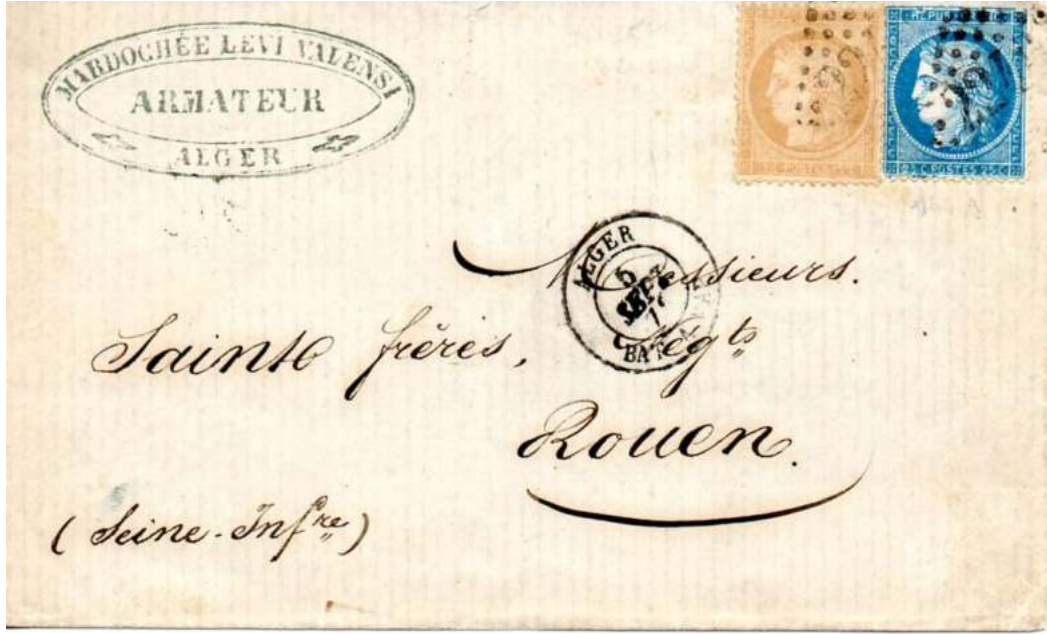 MARDOCHÉE LEVI VALENSI
ARMATEUR
ALGER
RÉPUB
25 C POSTES 25 C
ALGER
5
SEPT
BAT
Messieurs.
Sainte frères, Negts
Rouen.
(Seine-Infre)